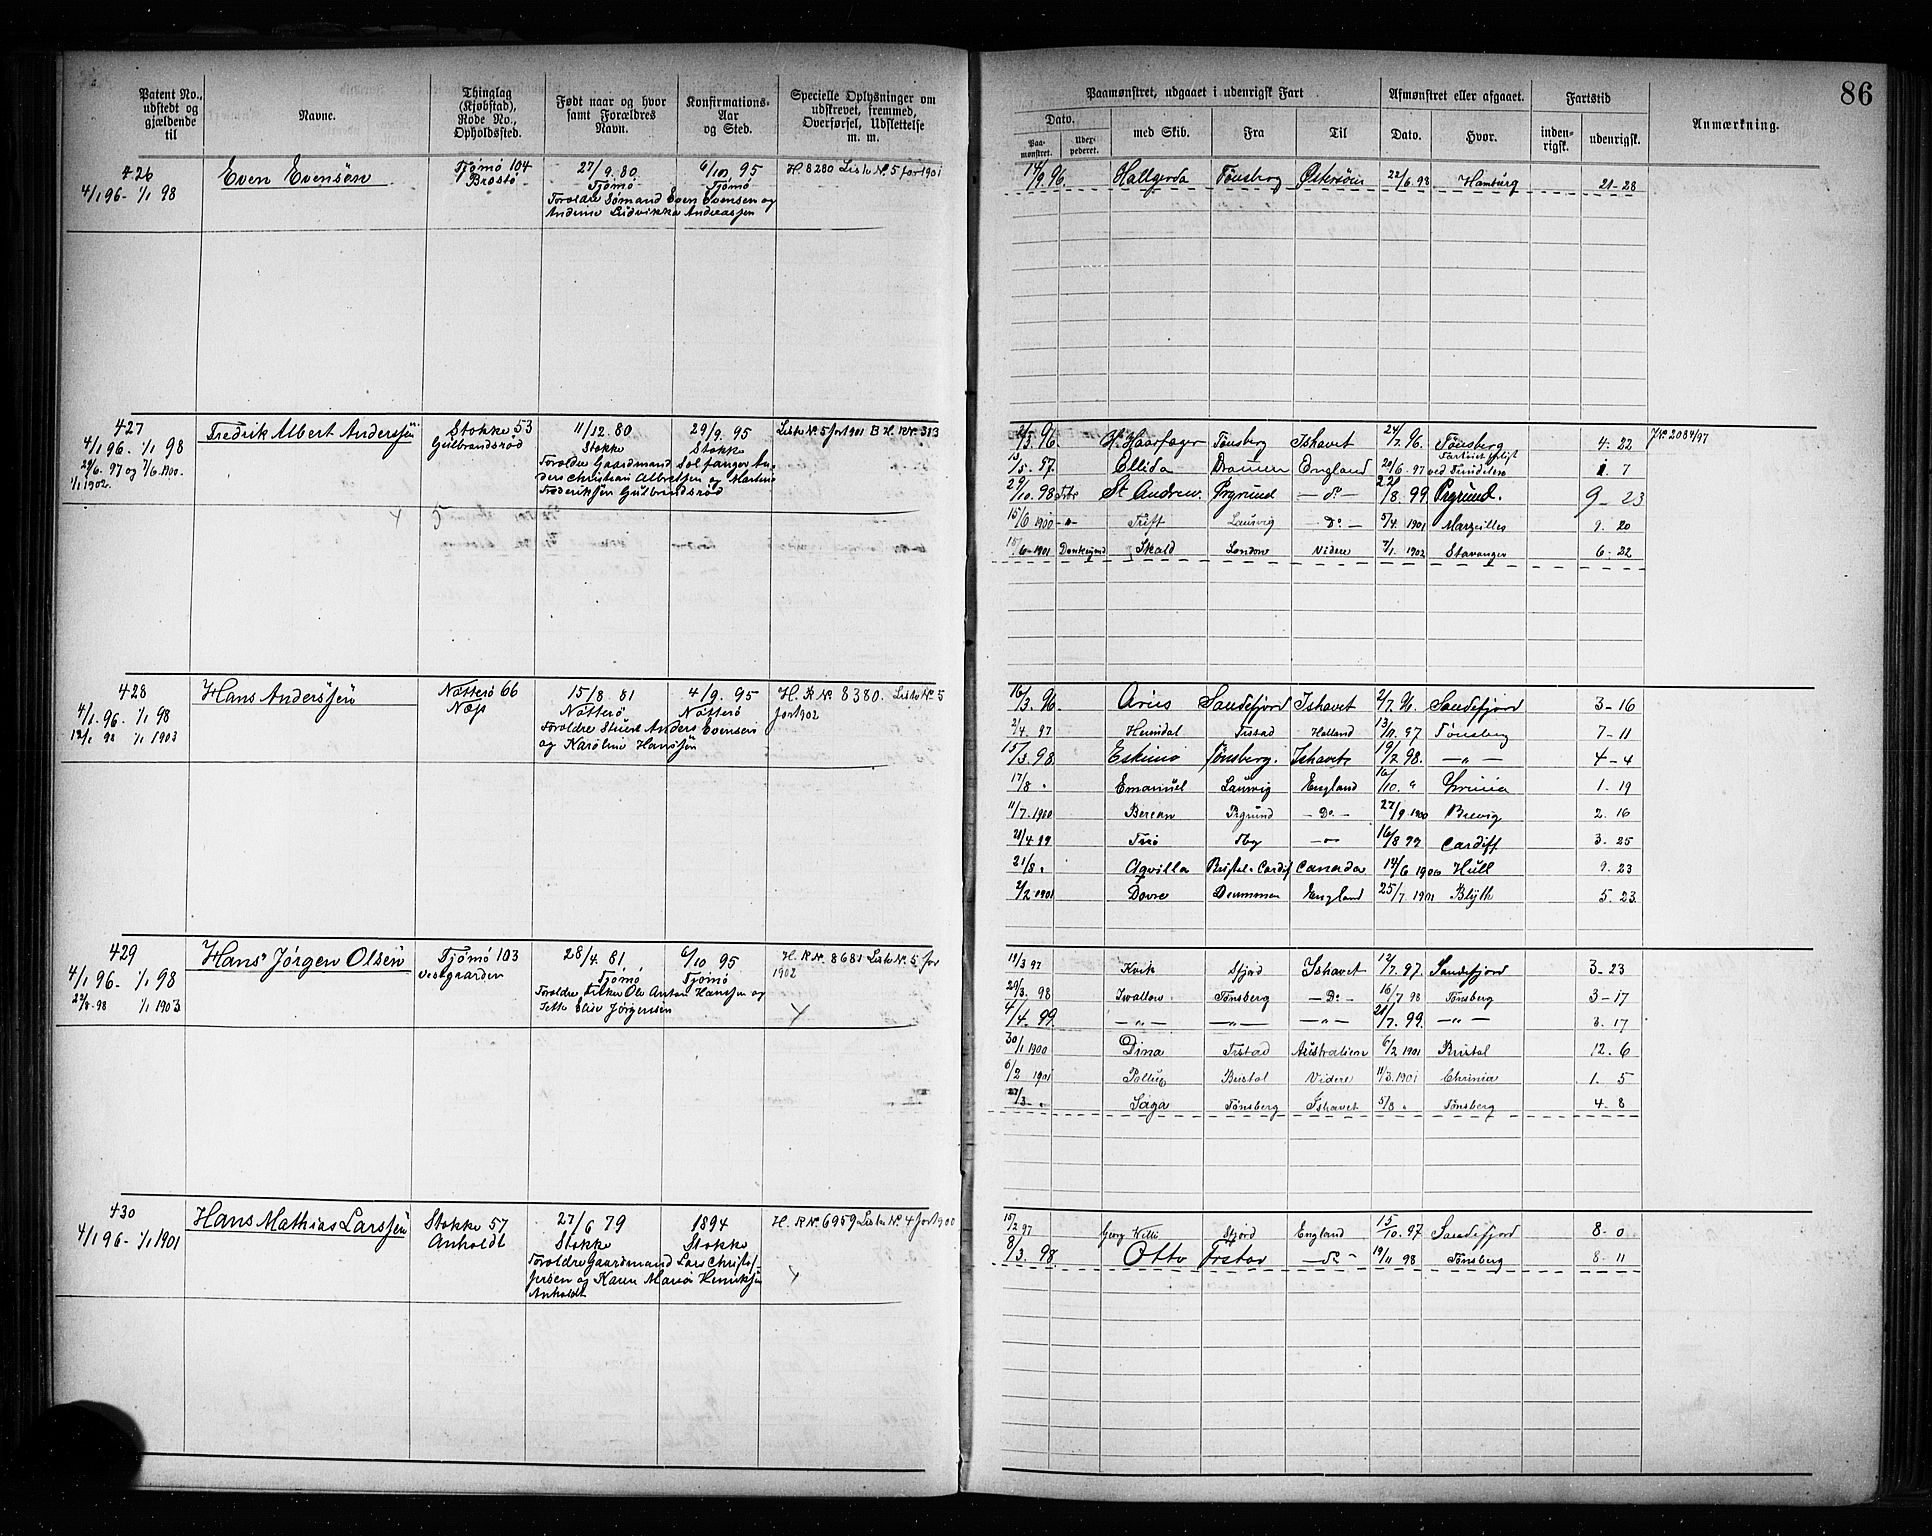 Patent No., udstedt og gjældende til | Navne. | Thinglag (Kjøbstad), Rode No., Opholdssted. | Født naar og hvor samt Forældres Navn. | Konfirmations-Aar og Sted. | Specielle Oplysninger om udskrevet, fremmed, Overførsel, Udslettelse m. m.
86
Paamønstret, udgaaet i udenrigsk Fart | Afmønstret eller afgaaet. | Fartstid | Anmærkning.
Dato. | med Skib. | Fra | Til | Dato. | Hvor. | inden-rigsk. | udenrigsk.
Paa-mønstret. | Udex-pederet.
426 Even Evensøn Tjømø 104 27/9. 80. 6/10. 95 H 8280 Liste Nr. 5 for 1901
4/1 96 - 1/1 98 Brøstø Tjømø Tjømø
Forældre Sømand Even Evensen og
Andrine Ludvikka Andreassen
14/9. 96. Hallgerda Tønsberg Østersøen 22/6. 98 Hamburg 21-28
427 Fredrik Albert Anderssen Stokke 53 11/12. 80 29/9. 95 Liste Nr. 5 for 1901 B H. R Nr. 313
4/1 96. 1/1 98 Gulbrandsrød Stokke Stokke
29/6. 97 og 7/6. 1900. Forældre Gaardmand
1/1 1902. ders Christian Albretsen og
Frederiksen Gulbrandsrød
3. 96. H. Haarfager Tønsberg Ishavet 24/7. 96. Tønsberg 4. 22 J.Nr. 2084/97
13/5. 97. Ellida Drammen England 20/6. 97 1 7
29/10. 98 St Andrew. Ørgrund - do - 22/8. 99 Prgrund. 9-23
15/6 1900 -"- Trift Laurvig - Do - 5/4. 1901 Marseilles 9. 20
15/6-1901 Skald London Videre 7/1. 1902 Stavanger 6. 22
428 Hans Anderssen Nøtterø 66 15/8. 81 4/9. 95 H. R Nr. 8380. Liste Nr. 5
4/1. 96. 1/1 98 Næs Nøtterø Nøtterø for 1902
12/1 98 1/1 1903 Forældre Stuert Anders Evensen
og Karoline Hanssen
16/3. 96. Arius Sandefjord Ishavet 2/7. 96. Sandefjord 3-16
2/4. 97 Heimdal Frstad Holland 13/11. 97 Tønsberg 7-11
15/3. 98 Eskimo Tønsberg. Ishavet 19/7 98. -"- 4-4
17/8 " Emanuel Laurvig England 16/10. " 1. 19
11/7. 1900 Berean Prgrund - Do - 27/9. 1900 Brevig 2. 16
21/4 99 Trio Tbg -"- 16/8 99 Cardiff 3. 25
21/8 " Aqvilla Bristol - Cardif Canada 14/6 1900 Hull 9. 23
2/2 1901 Dovre Drammen England 25/7. 1901 Blyth 5. 23
429 Hans Jørgen Olsen Tjømø 103 28/4. 81 6/10 95 H. R Nr. 8681 Liste Nr. 5 for
4/1 96 - 1/1 98 Vestgaarden Tjømø Tjømø 1902
22/8. 98 1/1 1903 Forældre Fisker Ole Anton Hanssen og
Elise Jørgensen
19/3 97 Kvik Sfjord Ishavet 12/7. 97. Sandefjord 3-23
29/3. 98 Swallow. Tønsberg - Do - 16/7 98 Tønsberg 3-17
4/4. 99. -"- -"- -"- 21/7. 99. -"- 3. 17
30/1 1900 Dina Frstad Australien 6/2 1901 Bristol 12. 6
6/2 1901 Pollux Bristol Videre 11/3. 1901 Chrinia 1. 5
27/3 - " Saga Tønsberg Ishavet 5/8 " Tønsberg 4. 8
430 Hans Mathias Larssen Stokke 57 27/6 79 1894 H. R Nr. 6959 Liste Nr. 4 for 1900
4/1 96 - 1/1 1901 Anholdt Stokke Stokke
Forældre Gaardmand Lars Christof-
fersen og Karen Maria Henriksen
Anholdt
15/2 97 Georg Willi Sfjord England 15/10. 97 Sandefjord 8-0
8/3. 98. Otto Frstad - do - 19/11 98 Tønsberg 8-11